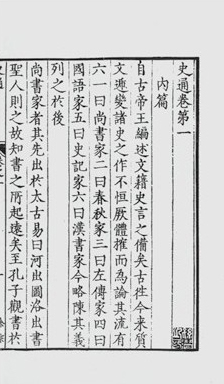 史通卷第一
內篇
自古帝王編述文籍史言之備矣古往今來質
文遞變諸史之作不恒厥體搉而為論其流有
六一曰尚書家二曰春秋家三曰左傳家四曰
國語家五曰史記家六曰漢書家今略陳其義
列之於後
尚書家者其先出於太古易曰河出圖洛出書
聖人則之故知書之所起遠矣至孔子觀書於